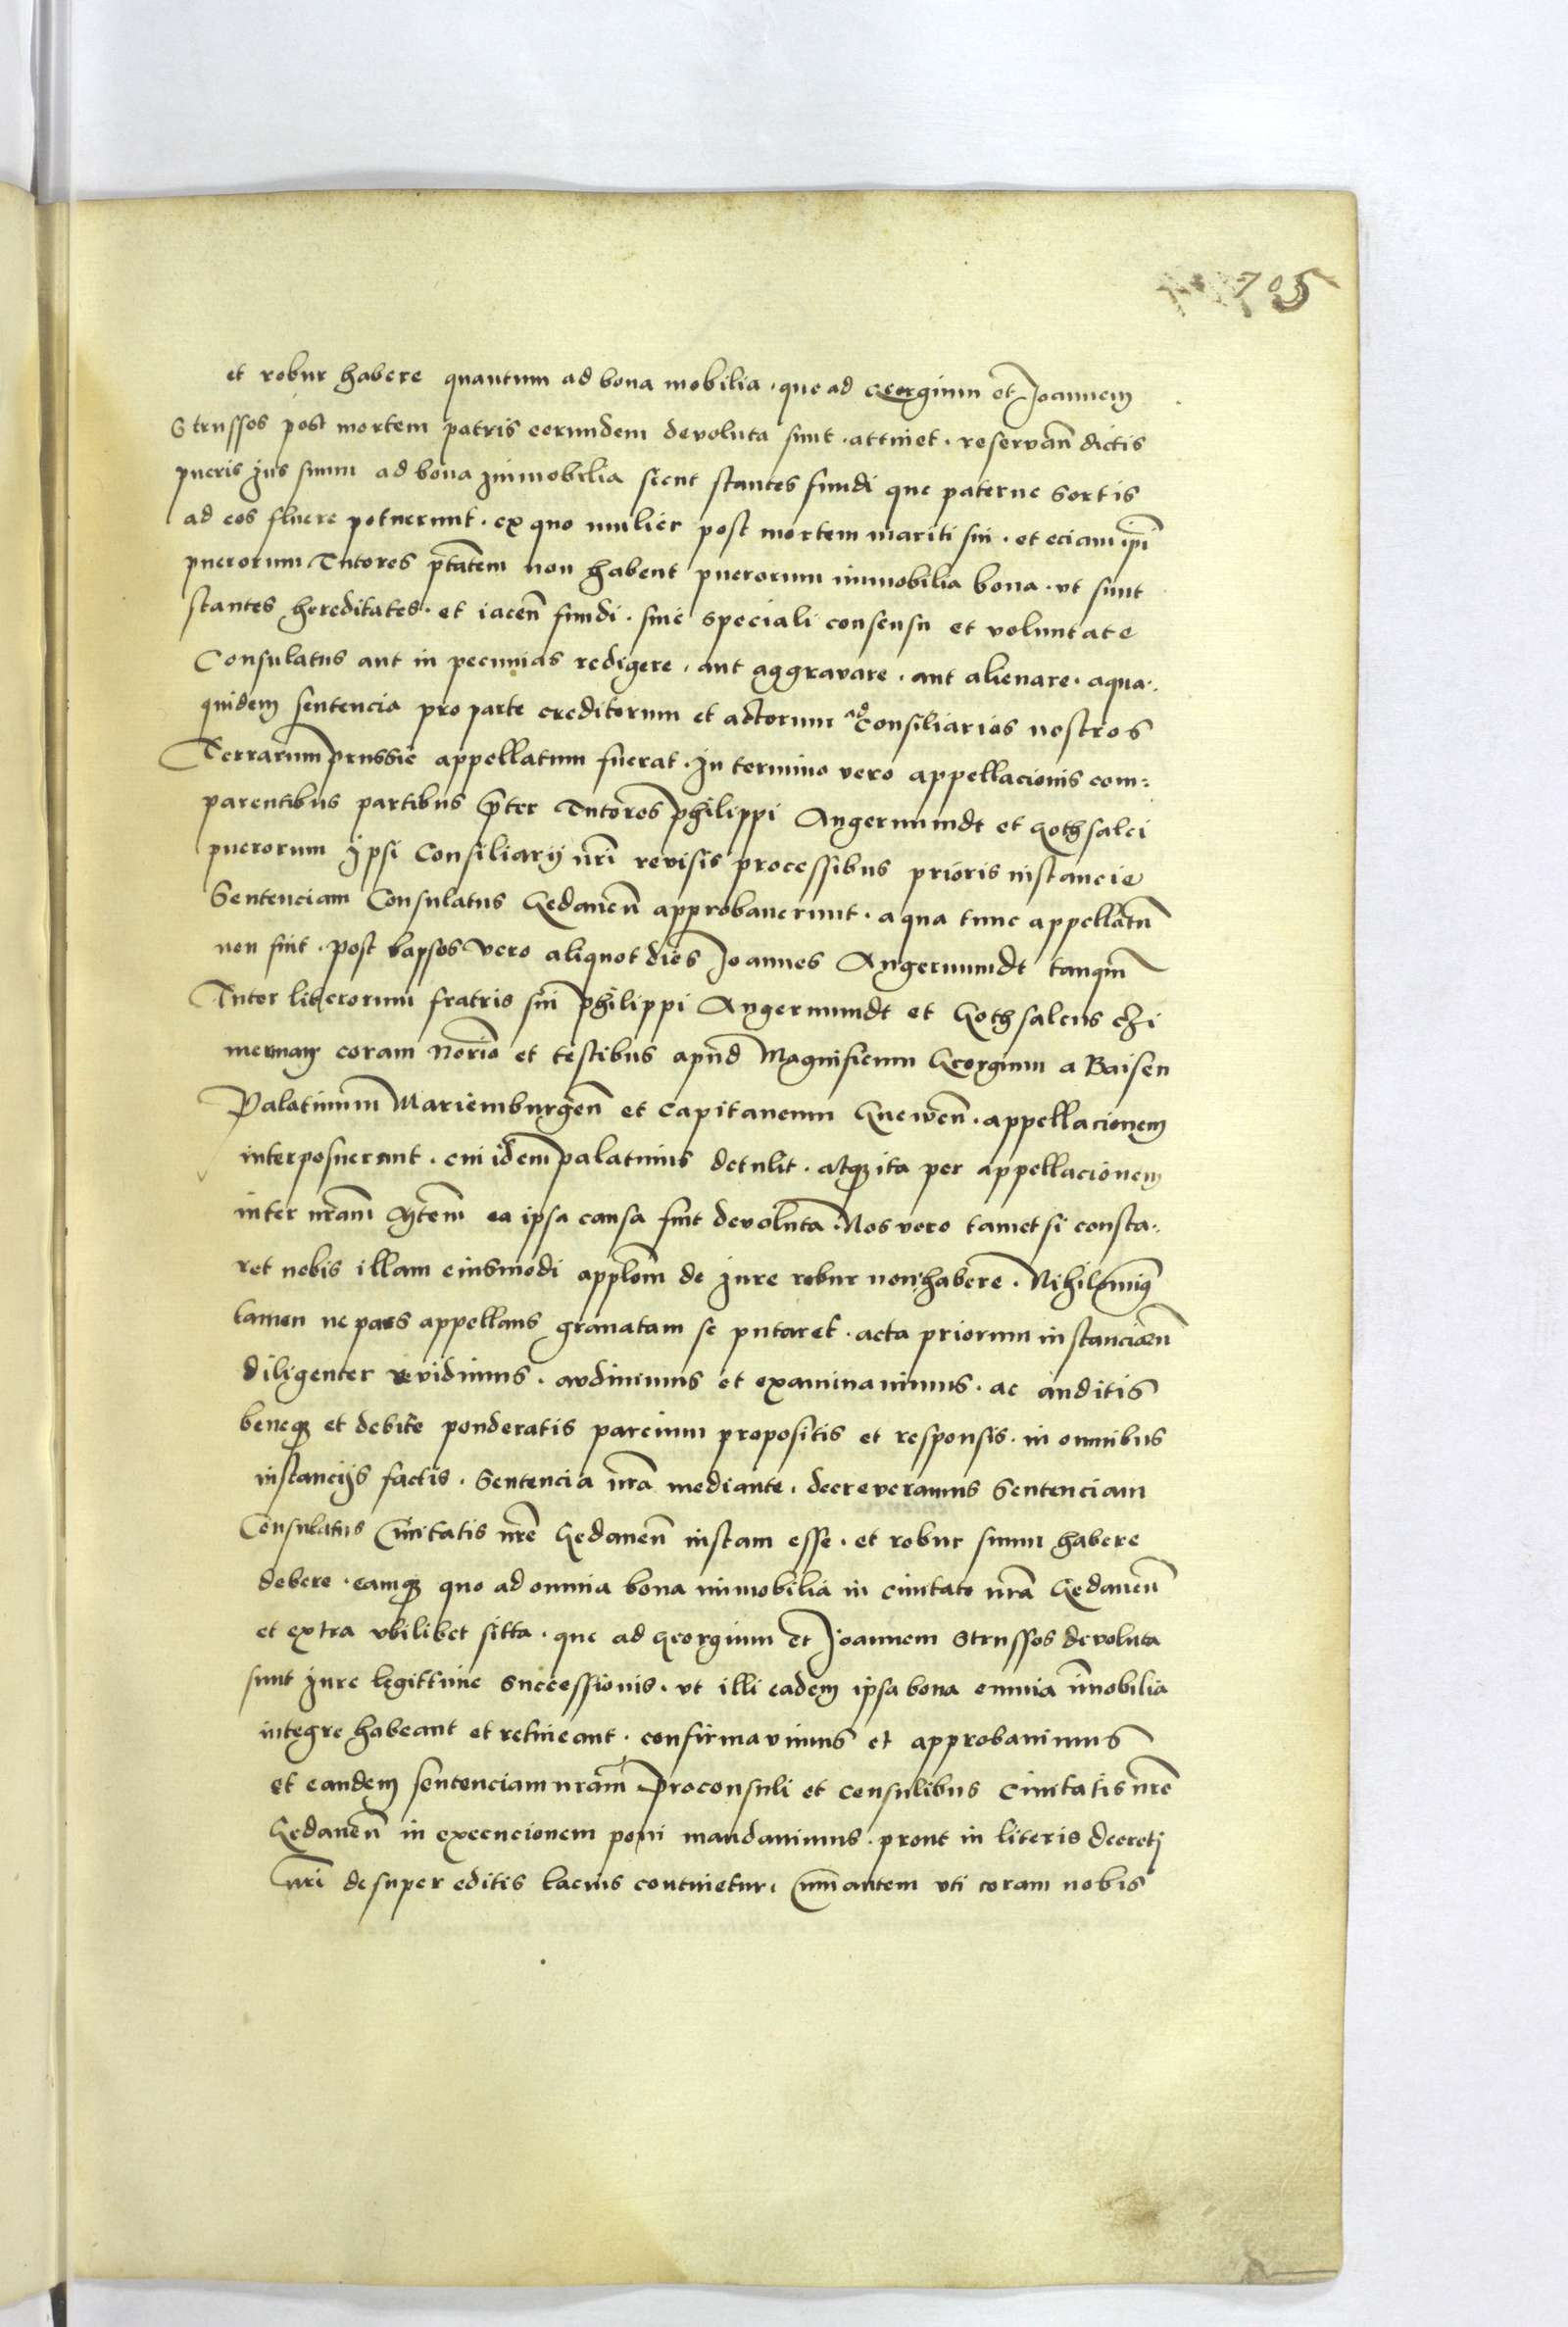 705
et robur habere quantum ad bona mobilia · que ad Georgium et Joannem
Strussos post mortem patris eorundem devoluta sunt · attinet · reservañ dictis
pueris jus suum ad bona jmmobilia sicut stantes fundi que paterne sortis
ad eos fluere potuerunt · ex quo mulier post mortem mariti sui · et eciam ip̃i
puerorum Tutores p̃tatem non habent puerorum immobilia bona · ut sunt
stantes hereditates · et iaceñ fundi · sine speciali consensu et voluntate
Consulatus aut in pecunias redigere · aut aggravare · aut alienare · aqua·
quidem sentencia pro parte creditorum et actorum ad Consiliarios nostros
Terrarum prussie appellatum fuerat · In termino vero appellacionis com:
parentibus partibus p̃ter Tutores philippi Angermundt et Gothsalci
puerorum Ipsi Consiliarij nr̃i revisis processibus prioris instancie
Sentenciam Consulatus Gedaneñ approbaverunt · aqua tunc appellatũ
non fuit · post lapsos vero aliquot dies Joannes Angermundt tanq̃m
Tutor liberorum fratris sui philippi Angermundt et Gothsalcus czi
merman coram notr̃io et testibus apud Magnificum Georgium a Baisen
Palatinum Mariemburgeñ et Capitaneum Gneweñ · appellacionem
interposuerant · cui idem palatinus detulit · atq3 ita per appellacionem
inter nr̃am M̃tem ea ipsa causa fuit devoluta · Nos vero tametsi consta·
ret nobis illam eiusmodi applõm de jure robur non habere · Nihilominus
tamen ne pars appellans gravatam se putaret · acta priorum instanciaru͂
diligenter revidimus · audivimus et examinavimus · ac auditis
beneq3 et debite ponderatis parcium propositis et responsis · in omnibus
instancijs factis · Sentencia nr̃a mediante · decreveramus Sentenciam
Consulatus Civitatis nr̃e Gedaneñ iustam esse · et robur suum habere
debere · eamq3 quo ad omnia bona immobilia in civitate nr̃a Gedaneñ
et extra ubilibet sitta · que ad Georgium et Joannem Strussos devoluta
sunt jure legittime successionis · ut illi eadem ipsa bona omnia im̃obilia
integre habeant et retineant · confirmavimus et approbavimus
et eandem sentenciam nr̃am proconsuli et consulibus Civitatis nr̃e
Gedaneñ in execucionem poni mandavimus · prout in literis decreti
nr̃i desuper editis lacius continetur · Cum autem uti coram nobis